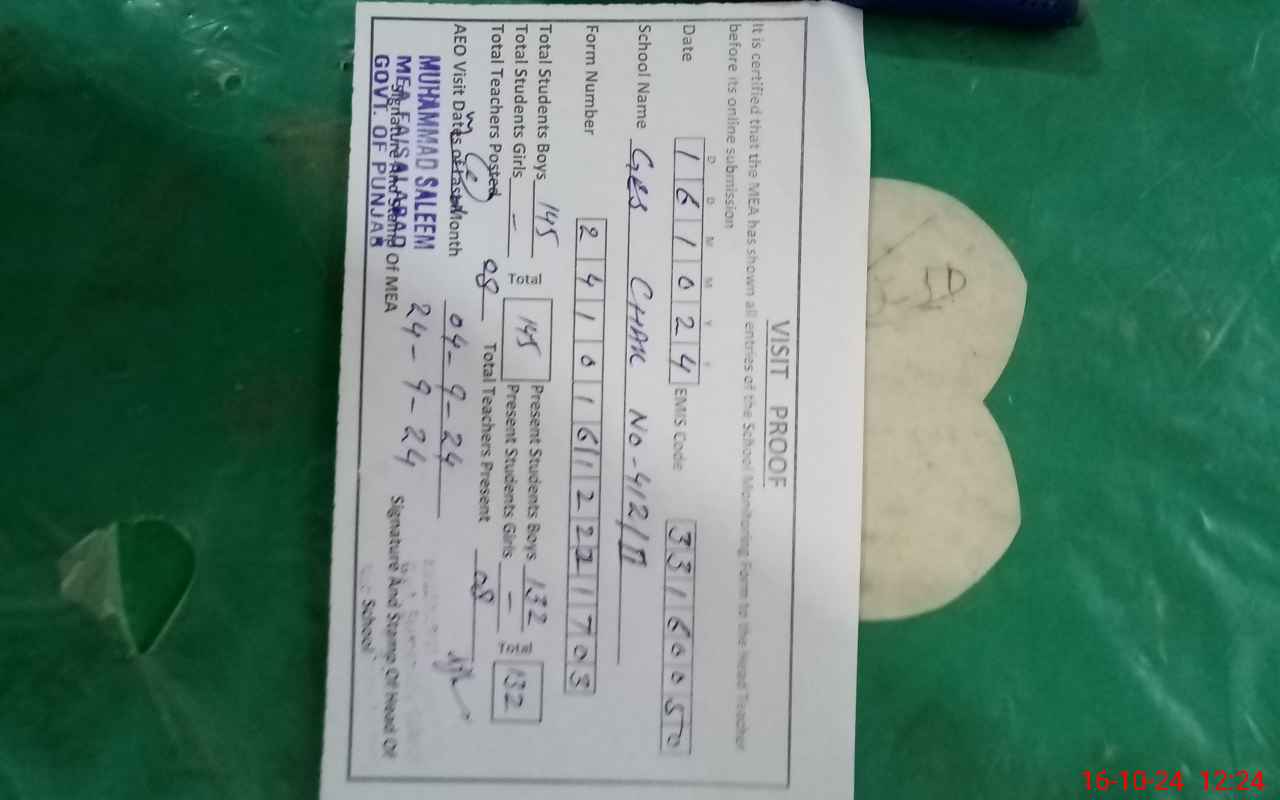 VISIT PROOF
It is certified that the MEA has shown all entries of the School Monitoring Form to the Head Teacher
before its online submission
D D M M Y Y
Date 1 6 1 0 2 4 EMIS Code 3 3 1 6 0 0 5 0
School Name GES CHAK No-412/II
Form Number 2 4 1 0 1 6 1 2 2 2 1 7 0 3
Total Students Boys 145 145 Present Students Boys 132 132
Total Students Girls - Present Students Girls -
Total Teachers Posted 08 Total Teachers Present 08
AEO Visit Dates of Last Month 04-9-24
24-9-24
MUHAMMAD SALEEM
MEA FAISALABAD
GOVT. OF PUNJAB
Signature And Stamp of MEA
Signature And Stamp Of Head Of
School
16-10-24 12:24